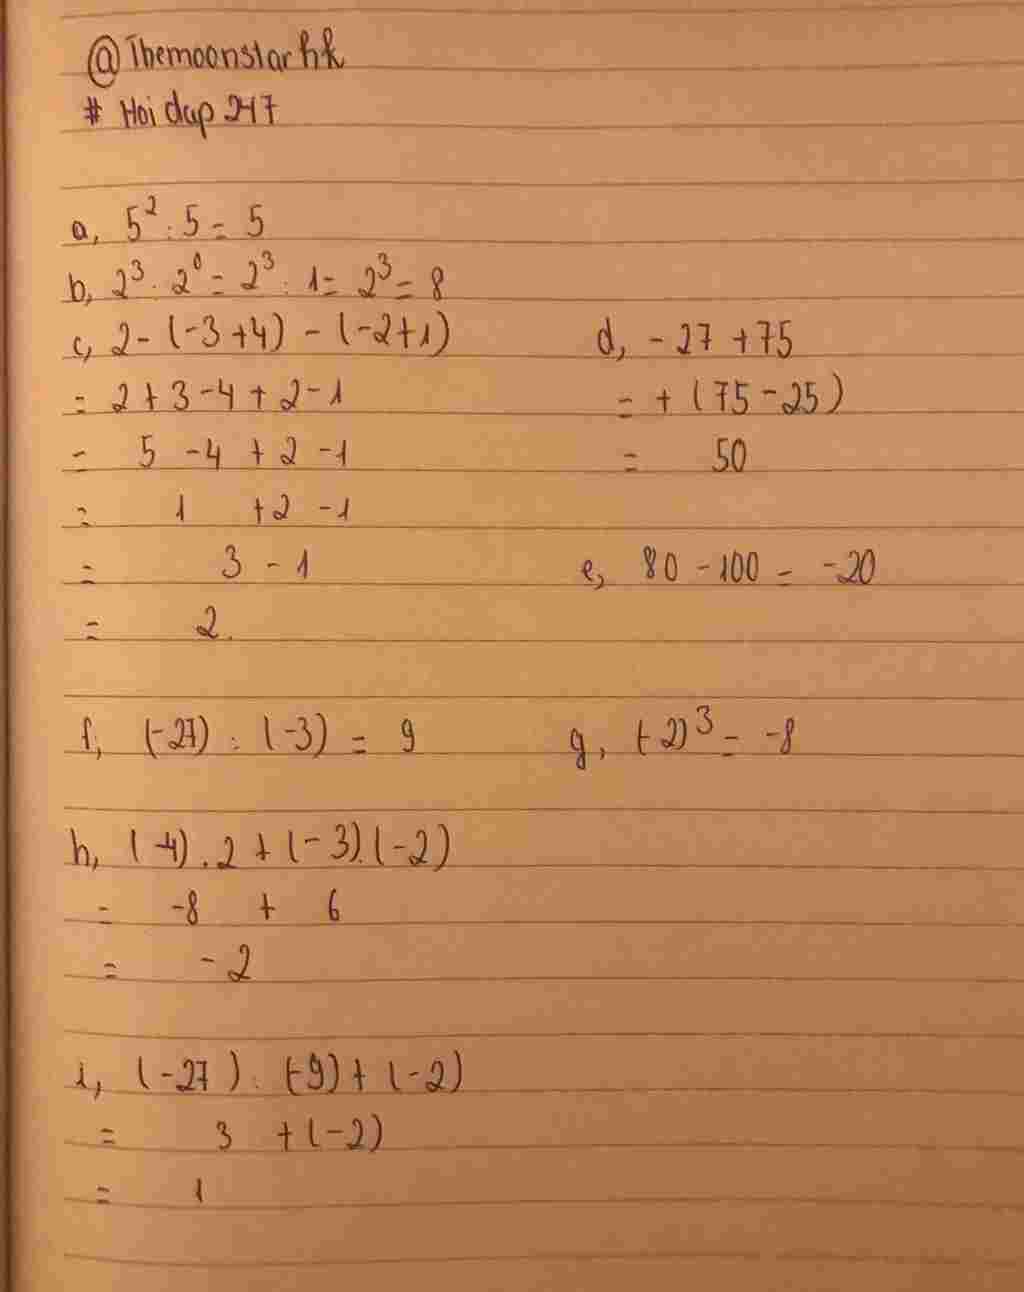 @Themoonstarhk
# Hoi dap 247
a, 5² : 5 = 5
b, 2³ . 2⁰ = 2³ . 1 = 2³ = 8
c, 2 - (-3 + 4) - (-2 + 1)
= 2 + 3 - 4 + 2 - 1
= 5 - 4 + 2 - 1
= 1 + 2 - 1
= 3 - 1
= 2.
d, - 27 + 75
= + (75 - 25)
= 50
e, 80 - 100 = -20
f, (-27) : (-3) = 9
g, (-2)³ = -8
h, (-4) . 2 + (-3).(-2)
= -8 + 6
= -2
i, (-27) : (-9) + (-2)
= 3 + (-2)
= 1